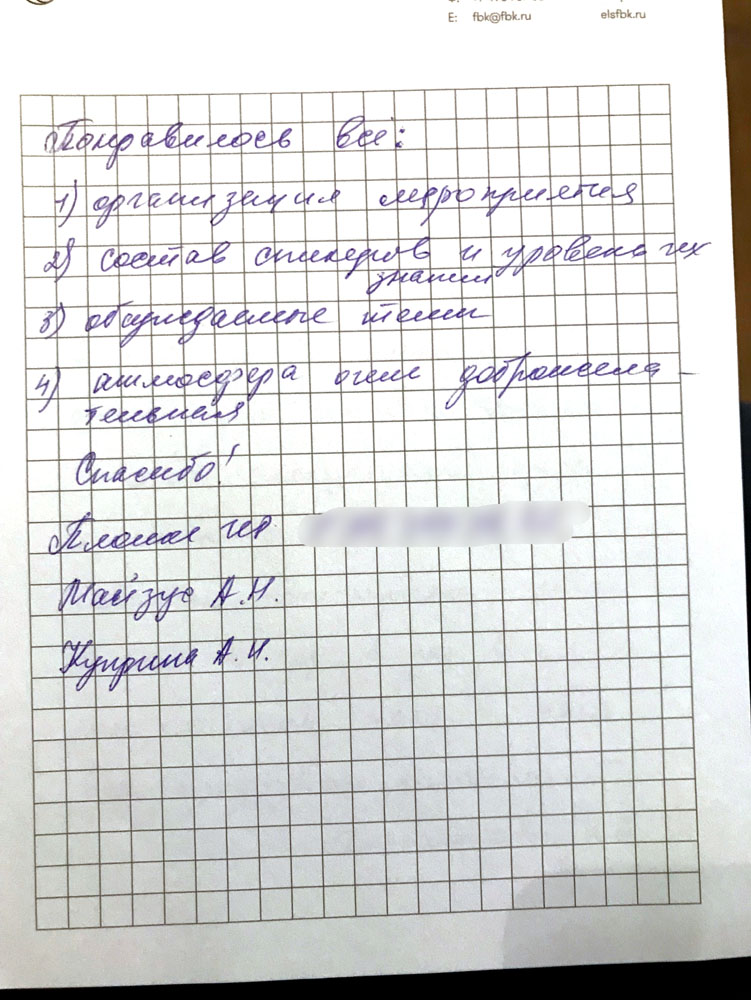 E: fbk@fbk.ru elsfbk.ru
Понравилось всё:
1) организация мероприятия
2) состав спикеров и уровень их
знаний
3) обсуждаемые темы
4) атмосфера очень доброжела-
тельная
Спасибо!
Майзус А.Н.
Куприна А.И.